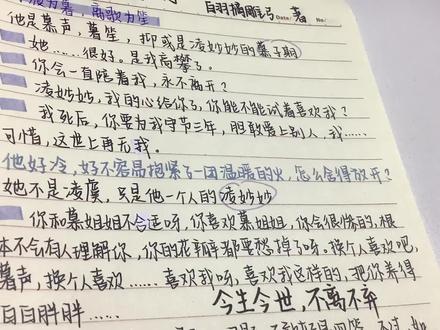 白羽摘雕弓 著
Date / No.
他是慕声,暮笙,抑或是凌妙妙的慕子期
她……很好。是我高攀了。
你会一直陪着我,永不离开?
凌妙妙,我的心给你了,你能不能试着喜欢我?
我死后,你要为我守节三年,胆敢爱上别人,我……
可惜,这世上再无我。
他好冷,好不容易抱紧了一团温暖的火,怎么舍得放开?
她不是凌虞,只是他一个人的凌妙妙
你和慕姐姐不合适呀,你喜欢慕姐姐,你会很惨的,根
本不会有人理解你,你的花瓣都要愁掉了呀。换个人喜欢吧,
暮声,换个人喜欢……喜欢我呀,喜欢我这样的,把你养得
白白胖胖……
今生今世,不离不弃